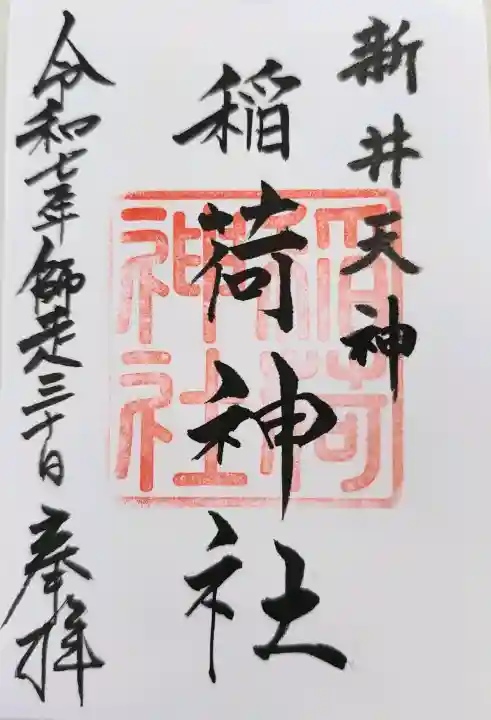 新井天神
稲荷神社
稲荷神社
令和七年師走三十日 奉拝